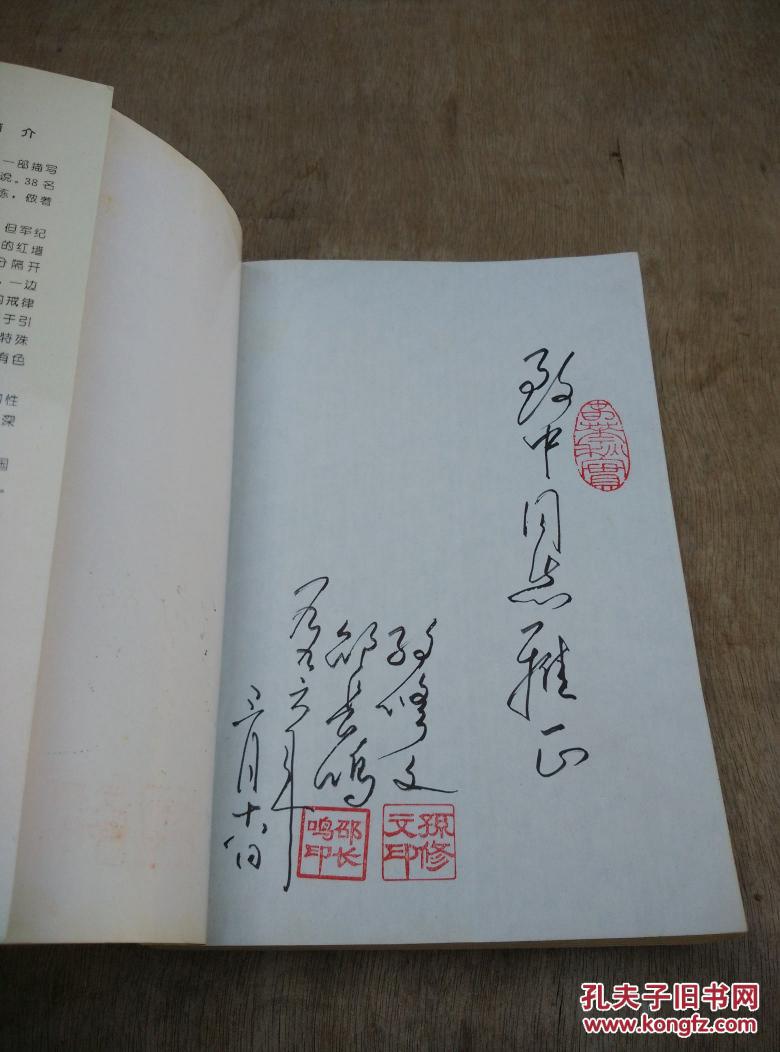 介
一部描写
说。38名
炼，做着
但军纪
的红墙
分隔开
，一边
的戒律
于引
特殊
有色
性
深
国
致中同志雅正
孙修文
邵长鸣
一九九六年
三月十八日
孙修文印
邵长鸣印
孔夫子旧书网
www.kongfz.com